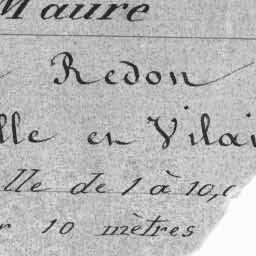 Maure
Redon
lle en Vilai
lle de 1 à 10,0
r 10 mètres